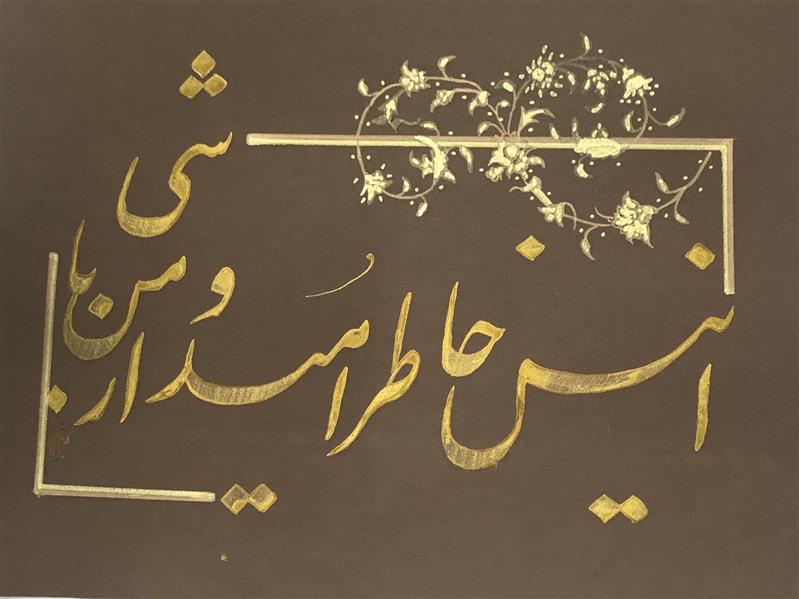 انیس خاطر امیدوار من باشی